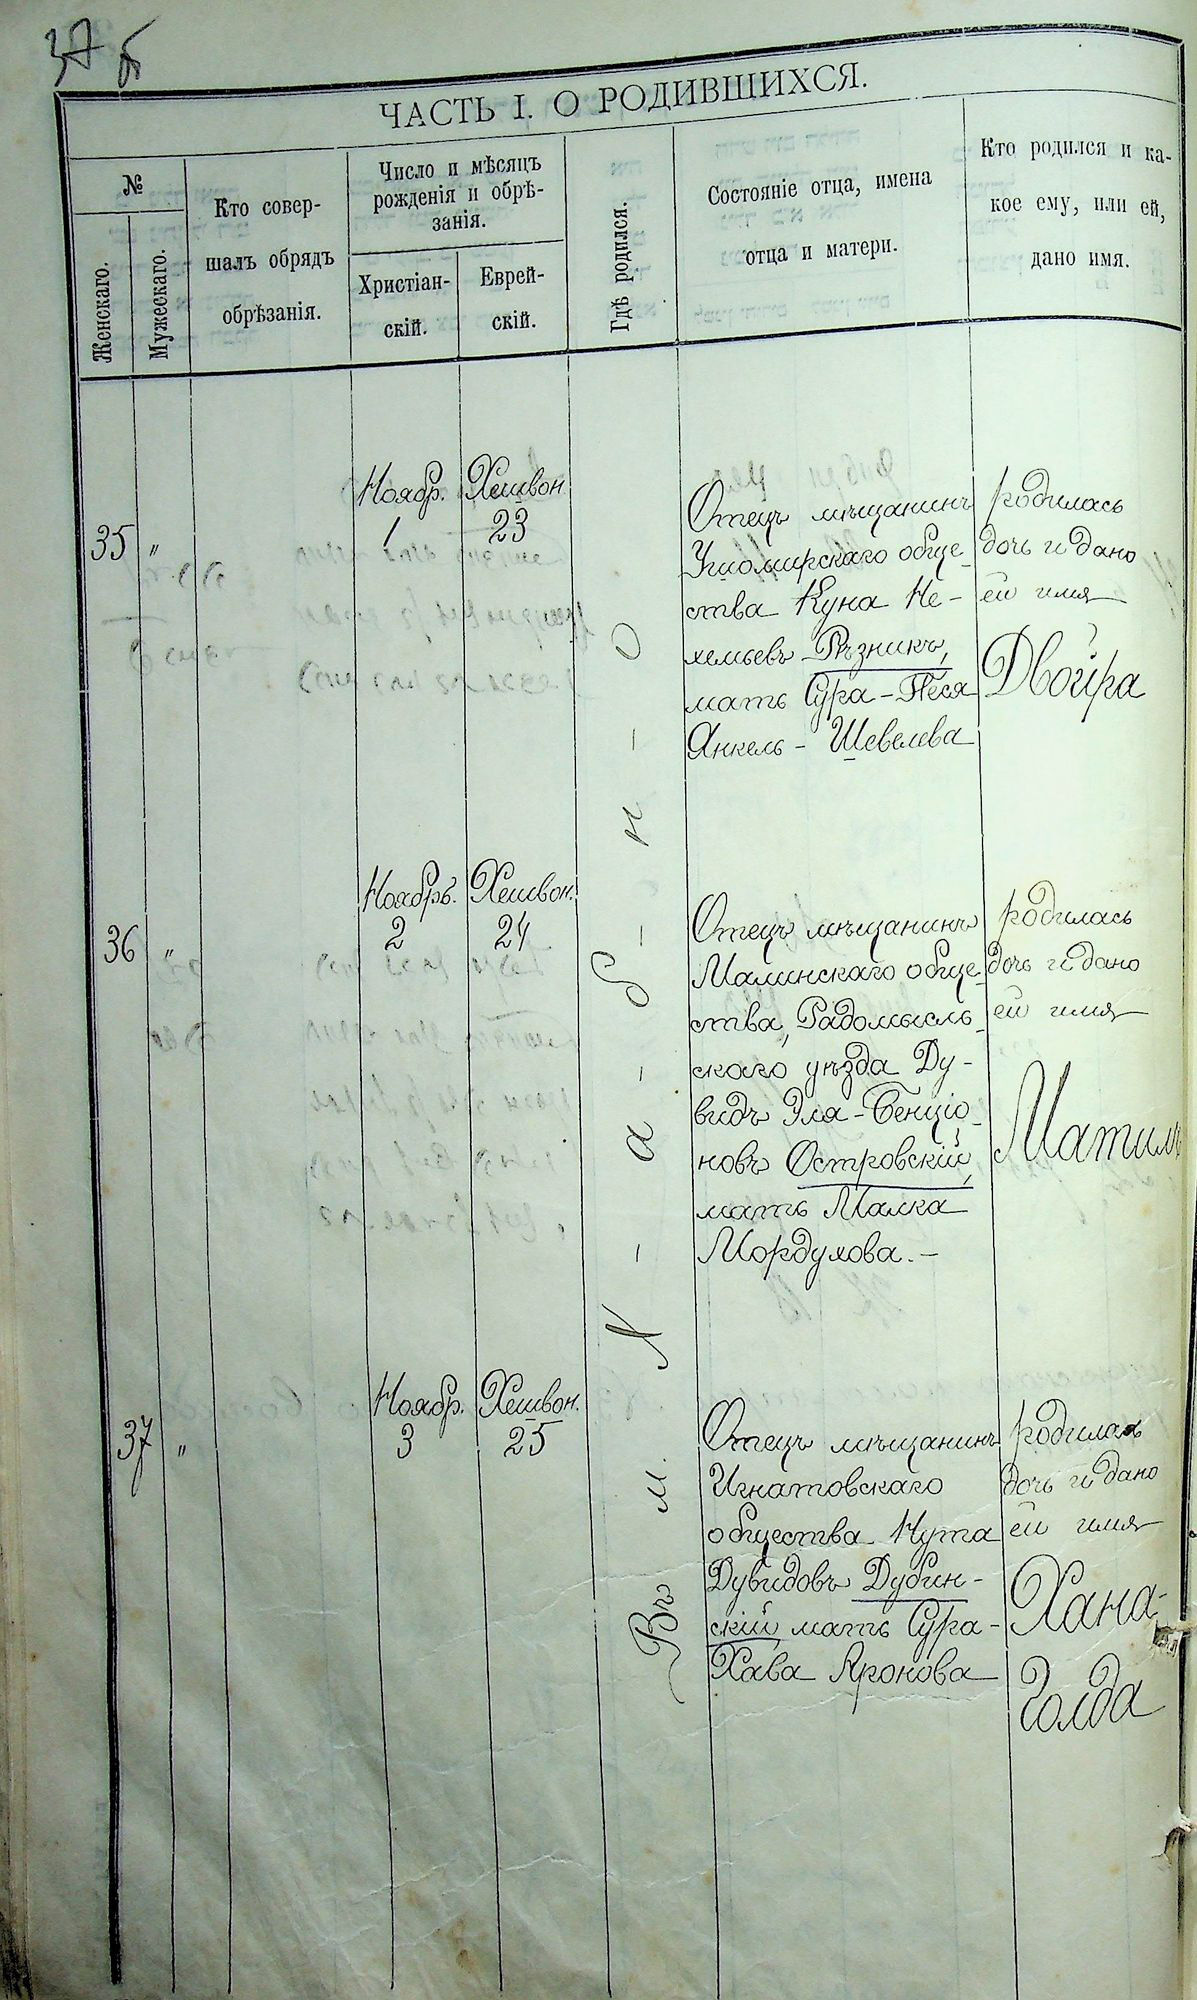 37 б
ЧАСТЬ I. О РОДИВШИХСЯ.
№
Женскаго.
Мужескаго.
Кто совер-
шалъ обрядъ
обрѣзанія.
Число и мѣсяцъ
рожденія и обрѣ-
занія.
Христіан-
скій.
Еврей-
скій.
Гдѣ родился.
Состояніе отца, имена
отца и матери.
Кто родился и ка-
кое ему, или ей,
дано имя.
Въ м. Л-а-б-н-о
35 "
Ноябр.
1
Хешвон
23
Отецъ мѣщанинъ
Ушомирскаго обще-
ства Куна Не-
хемьевъ Рѣзникъ,
мать Сура-Песя
Янкель-Шевелева
родилась
дочь и дано
ей имя
Двойра
36 "
Ноябрь.
2
Хешвон.
24
Отецъ мѣщанинъ
Малинскаго обще-
ства, Радомысль-
скаго уѣзда Ду-
видъ Эля-Бенціо-
новъ Островскій,
мать Малка
Мордухова.-
родилась
дочь и дано
ей имя
Матиль
37 "
Ноябр.
3
Хешвон.
25
Отецъ мѣщанинъ
Игнатовскаго
общества Нута
Дувидовъ Дубин-
скій, мать Сура-
Хава Аронова
родилась
дочь и дано
ей имя
Хана-
Голда